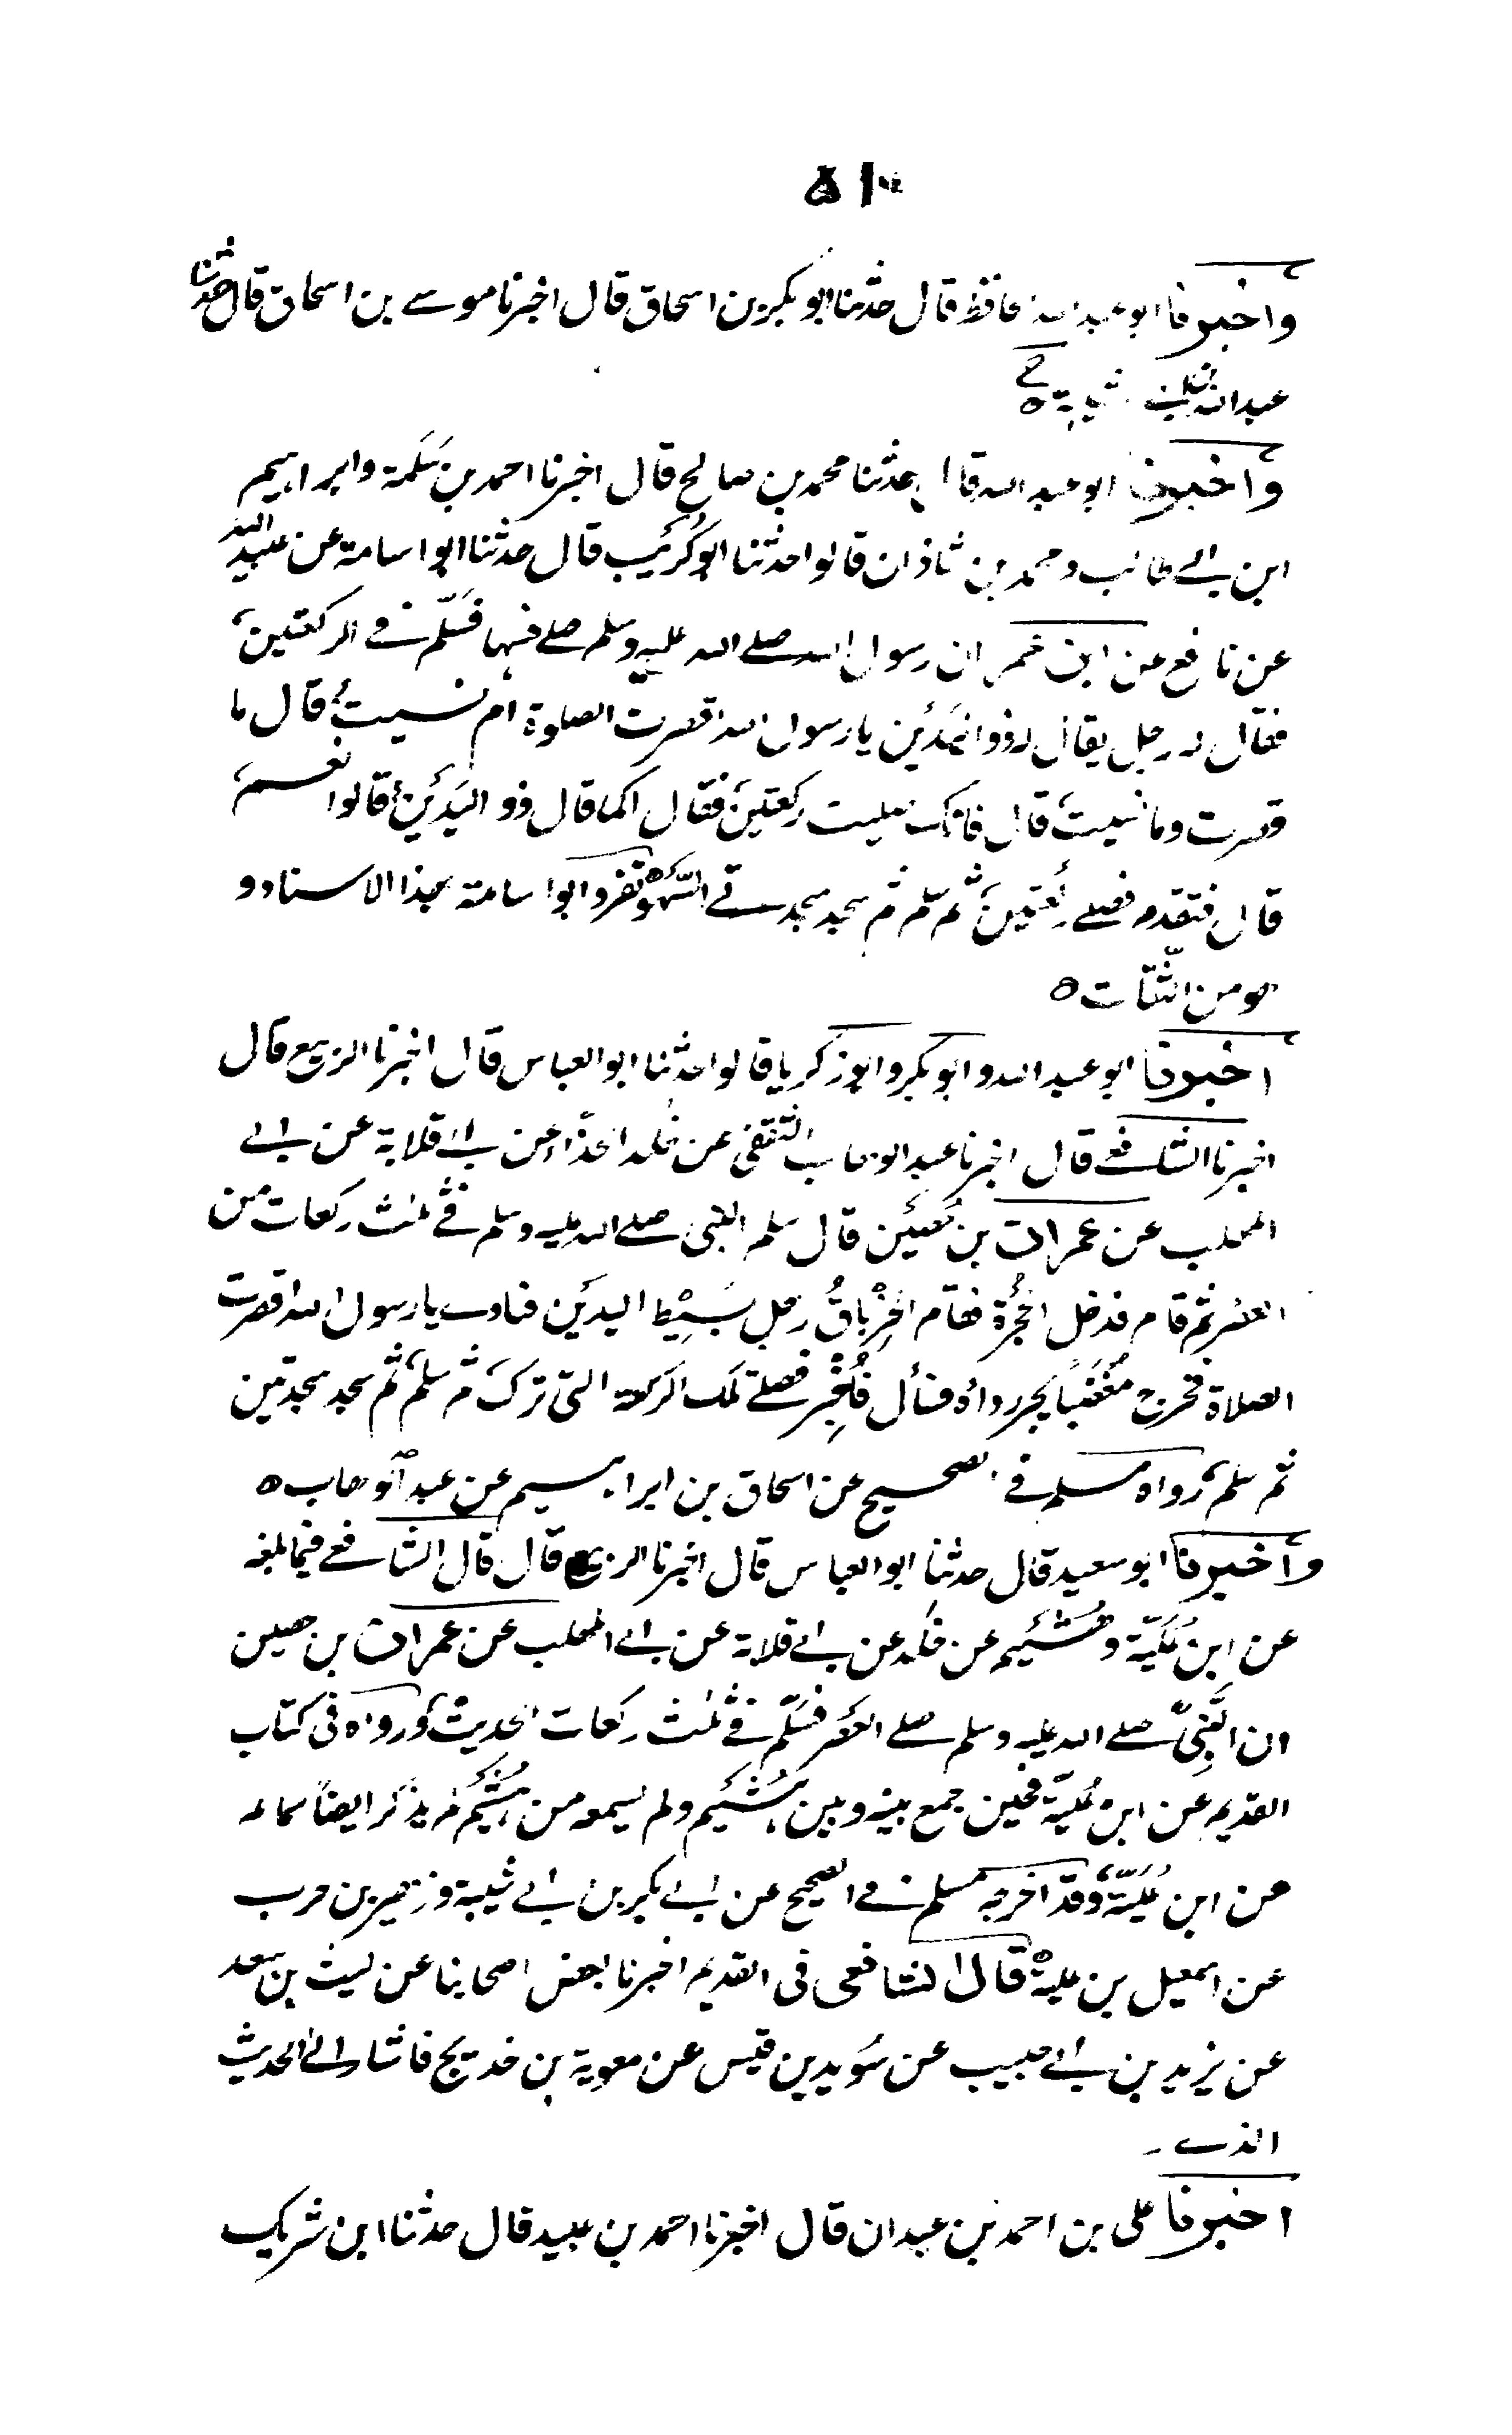 ٥١٠
واخبرنا ابو عبد الله الحافظ قال حدثنا ابو بكر بن اسحاق قال اخبرنا موسے بن اسحاق قال حدثنا
عبد الله بن ابي شيبة ح ٥
واخبرنا ابو عبد الله قال حدثنا محمد بن صالح قال اخبرنا احمد بن سَلَمة وابراہیم
ابن ابے طالب ومحمد بن شاذان قالوا حدثنا ابو كُرَيْب قال حدثنا ابو اسامة عن عبيد الله
عن نافع عن ابن عمر ان رسول الله صلے الله عليه وسلم صلے فسَلّم فے الركعتين،
فقال له رجل يقال له ذو اليَدَيْن يا رسول الله اقصرت الصلوة ام نسيت؟ قال ما
قصرت وما نسيت، قال فانك صليت ركعتين، فقال اكما قال ذو اليَدَيْن؟ قالوا نعم،
قال فتقدم فصلے ركعتين، ثم سلم ثم سجد سجدتے السَّهْو ٥ تفرد ابو اسامة بهذا الاسناد و
هو من الثّقات ٥
اخبرنا ابو عبد الله وابو بكر وابو زكريا قالوا حدثنا ابو العباس قال اخبرنا الربيع قال
اخبرنا الشافعے قال اخبرنا عبد الوهاب الثقفى عن خٰلد الحذّاء عن ابے قلابة عن ابے
المهلب عن عمران بن حُصَيْن قال سلم النبى صلے الله عليه وسلم فے ثلٰث ركعات من
العصر ثم قام فدخل الحُجْرة فقام الخِرْباقُ رجل بَسِيْط اليدين فنادے يا رسول الله اقصرت
الصلاة فخرج مُغْضَباً يجر رداءه فسأل فاُخْبِر فصلے تلك الركعة التى ترك، ثم سلم، ثم سجد سجدتين
ثم سلم، رواه مسلم فے الصحيح عن اسحاق بن ابراہیم عن عبد الوهاب ٥
واخبرنا ابو سعيد قال حدثنا ابو العباس قال اخبرنا الربيع قال قال الشافعے فيما بلغه
عن ابن عُلَيّة وهُشَيْم عن خٰلد عن ابے قلابة عن ابے المهلب عن عمران بن حصين
ان النَّبِىّ صلے الله عليه وسلم صلے العصر فسَلّم فے ثلٰث ركعات الحديث، ورواه فى كتاب
القديم عن ابن عُلَيّة فحين جمع بينه وبين هُشَيْم ولم يسمعه من هُشَيْم لم يذكر ايضاً سماعه
من ابن عُلَيّة، وقد اخرجه مسلم فے الصحيح عن ابے بكر بن ابے شيبة وزهير بن حرب
عن اسمٰعيل بن علية ٥ قال الشافعى فى القديم اخبرنا بعض اصحابنا عن ليث بن سعد
عن يزيد بن ابے حبيب عن سُويد بن قيس عن معوية بن خديج فاشار الے الحديث
الذے
اخبرنا على بن احمد بن عبدان قال اخبرنا احمد بن عبيد قال حدثنا ابن شريك